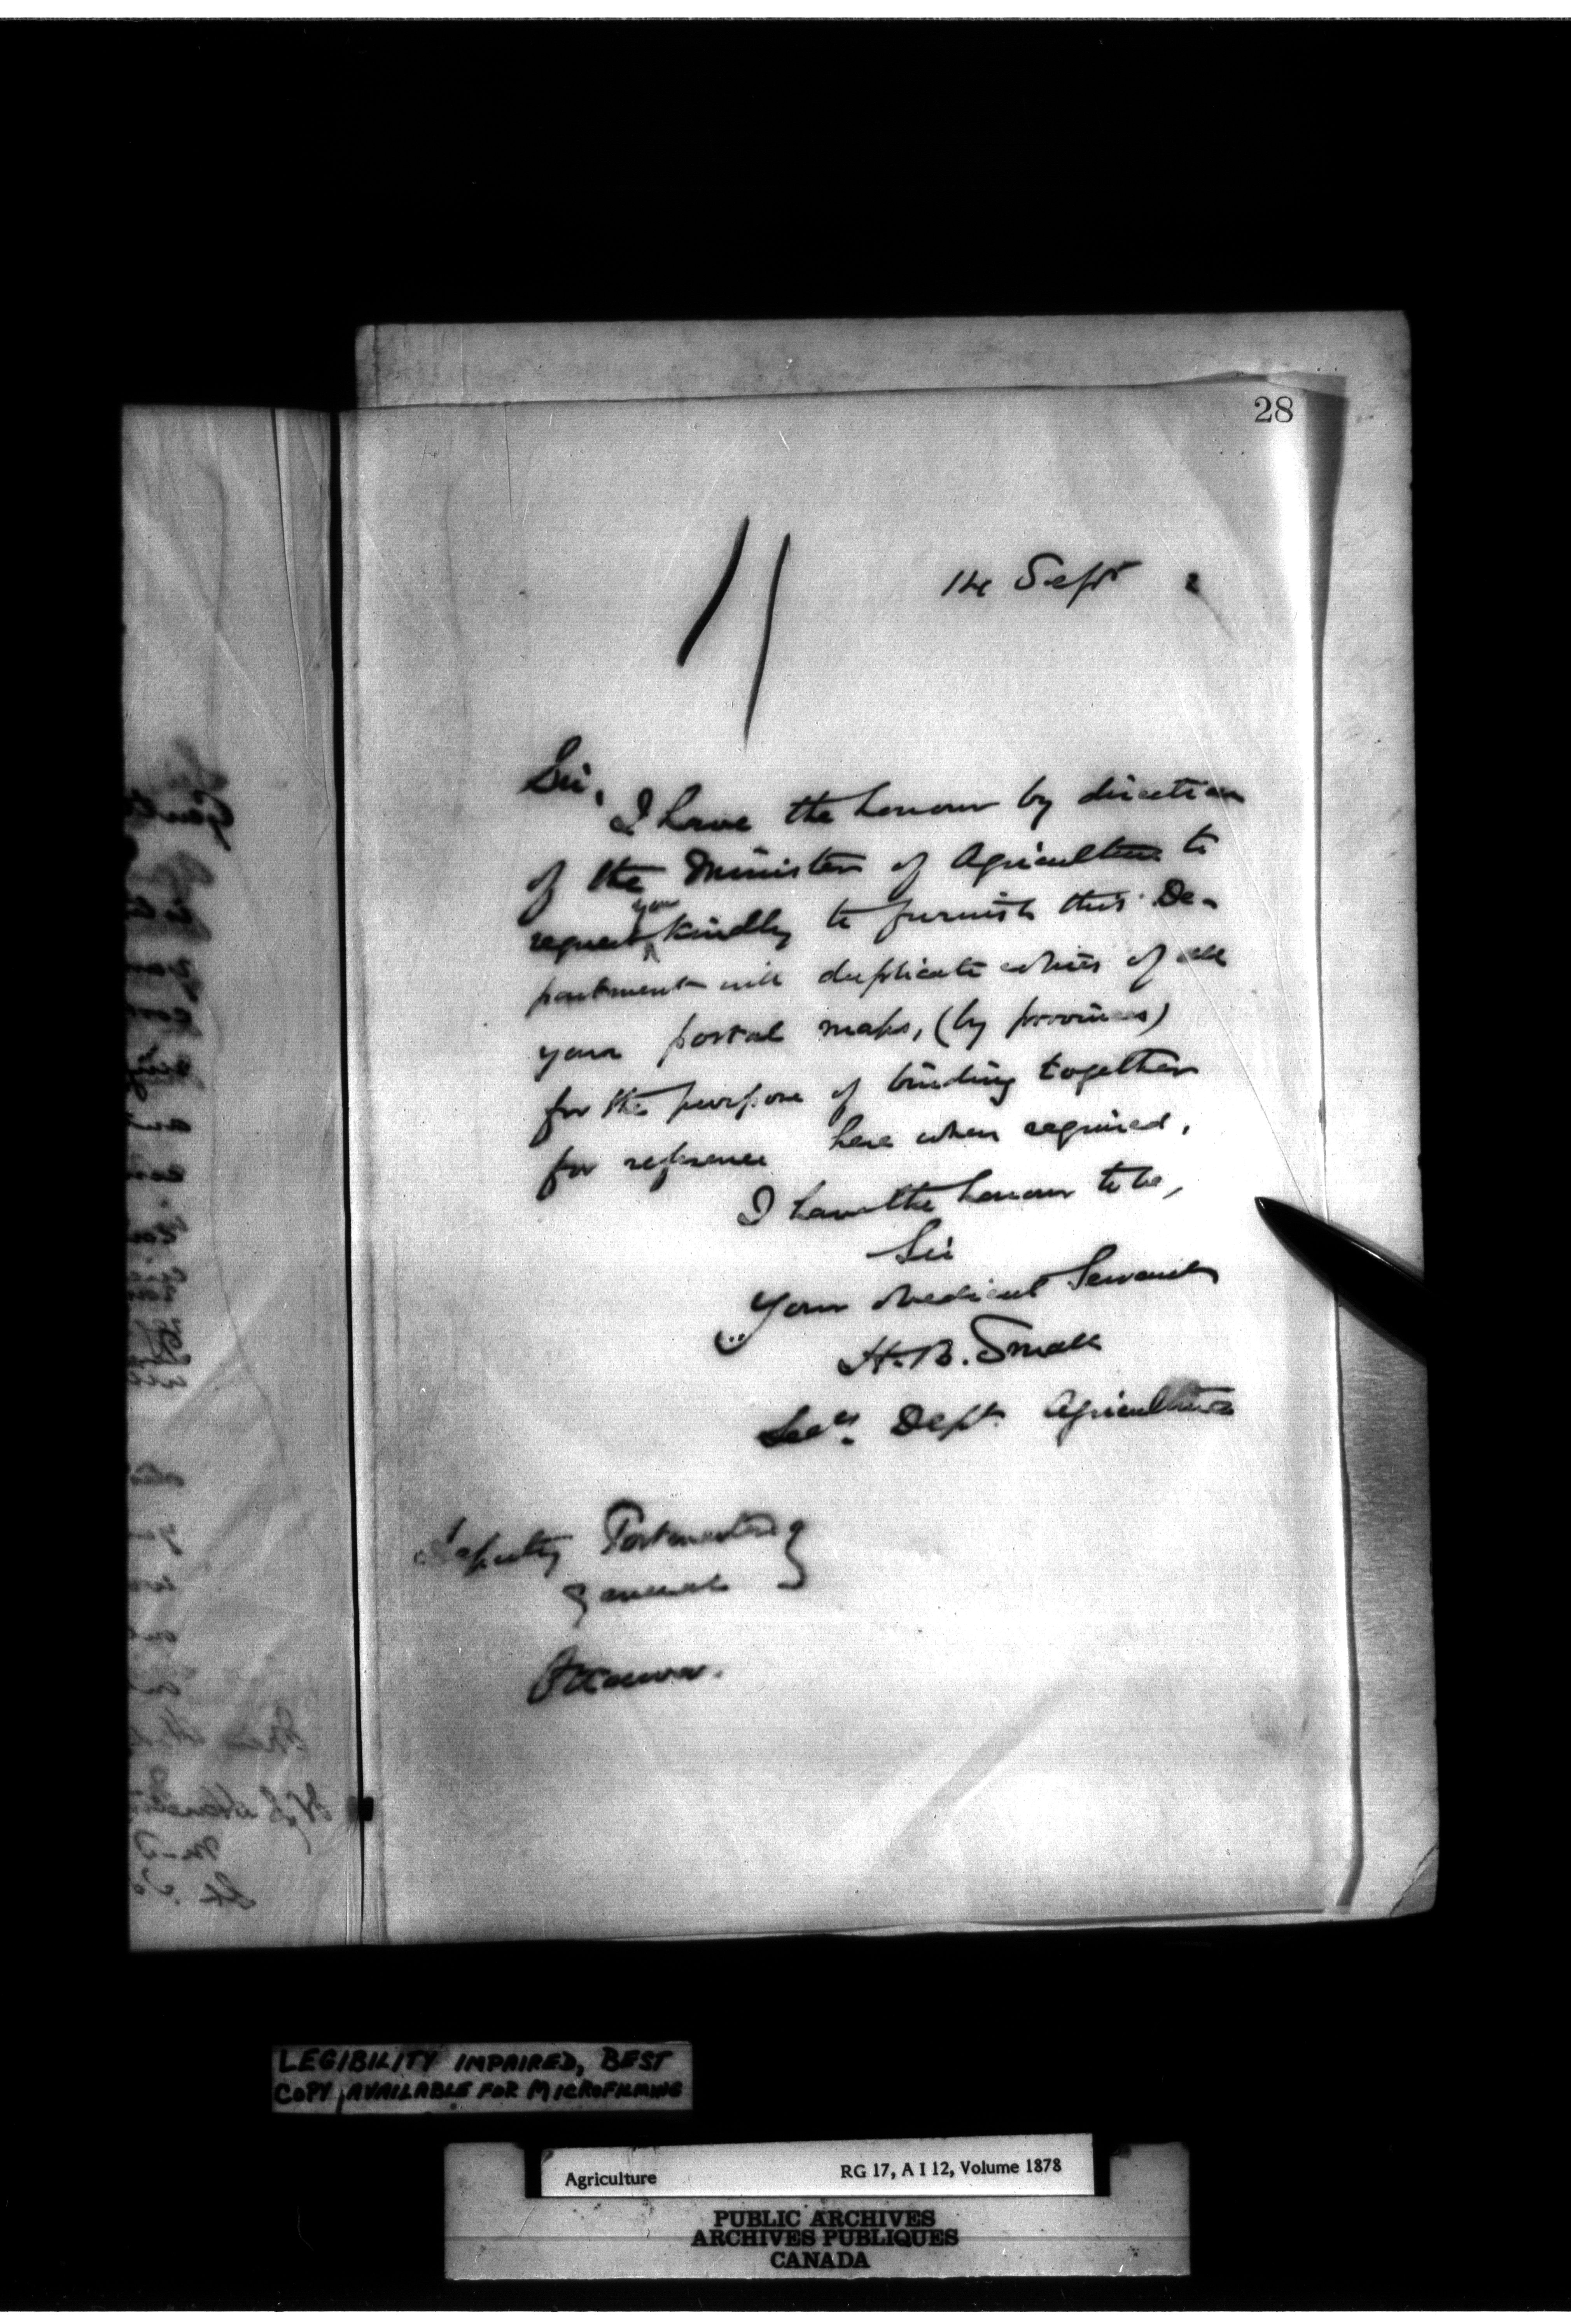 28
14 Sept 2
Sir,
I have the honour by direction
of the Minister of Agriculture to
you
request kindly to furnish this De-
partment with duplicate copies of all
your postal maps, (by provinces)
for the purpose of binding together
for reference here when required.
I have the honour to be,
Sir
Your obedient Servant
H. B. Small
Secy. Dept. Agriculture
Deputy Postmaster
General
Ottawa.
LEGIBILITY IMPAIRED, BEST
COPY AVAILABLE FOR MICROFILMING
Agriculture RG 17, A I 12, Volume 1878
PUBLIC ARCHIVES
ARCHIVES PUBLIQUES
CANADA